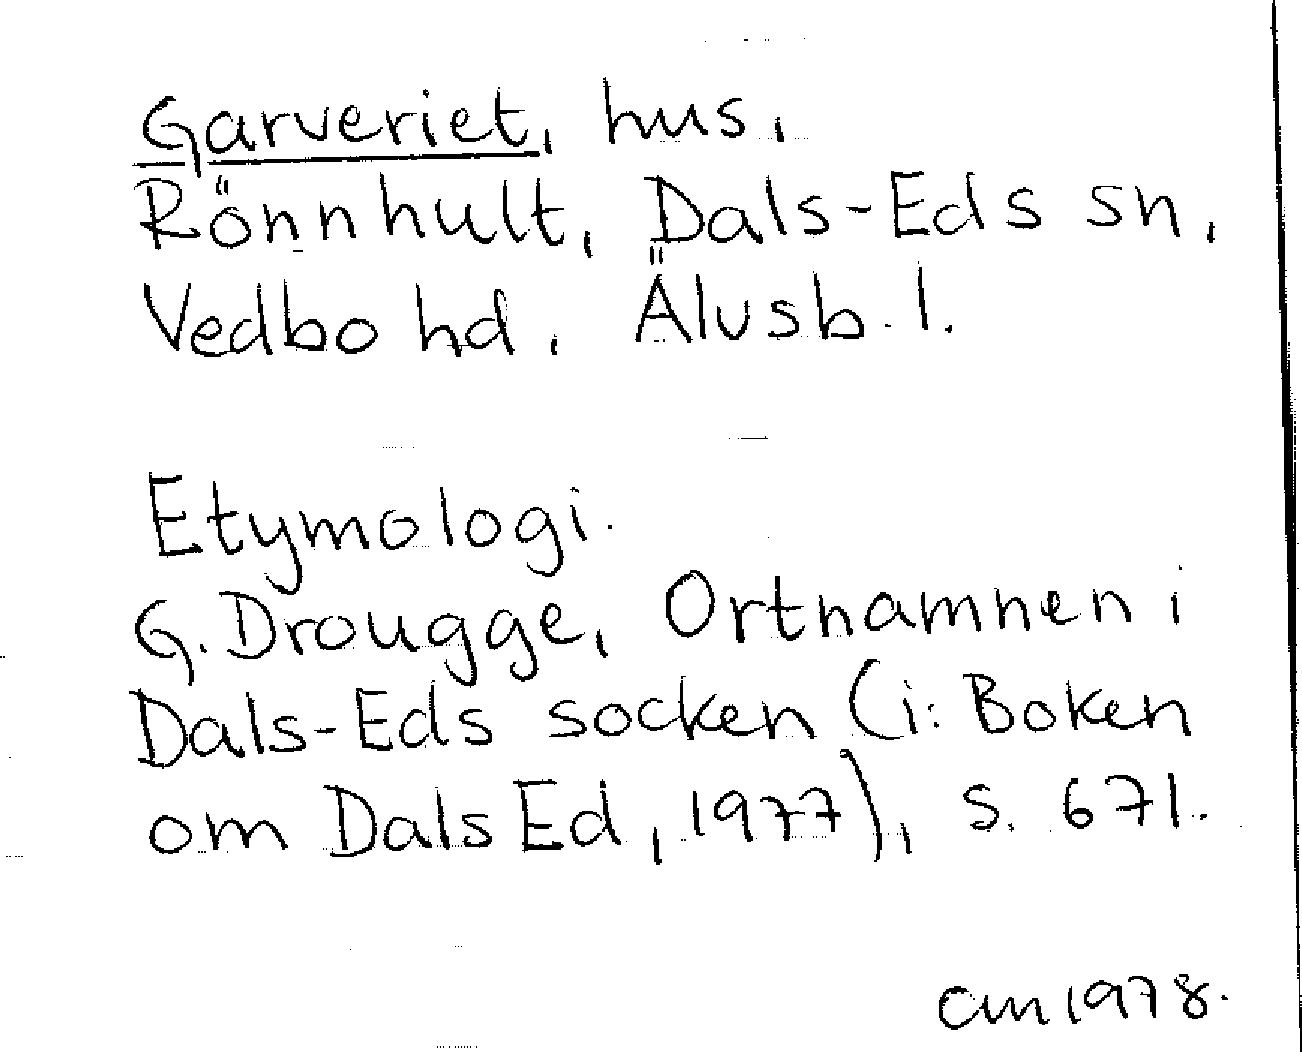 Garveriet, hus,
Rönnhult, Dals-Eds sn,
Vedbo hd, Älvsb. l.
Etymologi.
G. Drougge, Ortnamnen i
Dals-Eds socken (i: Boken
om Dals Ed, 1977), s. 671.
am 1978.